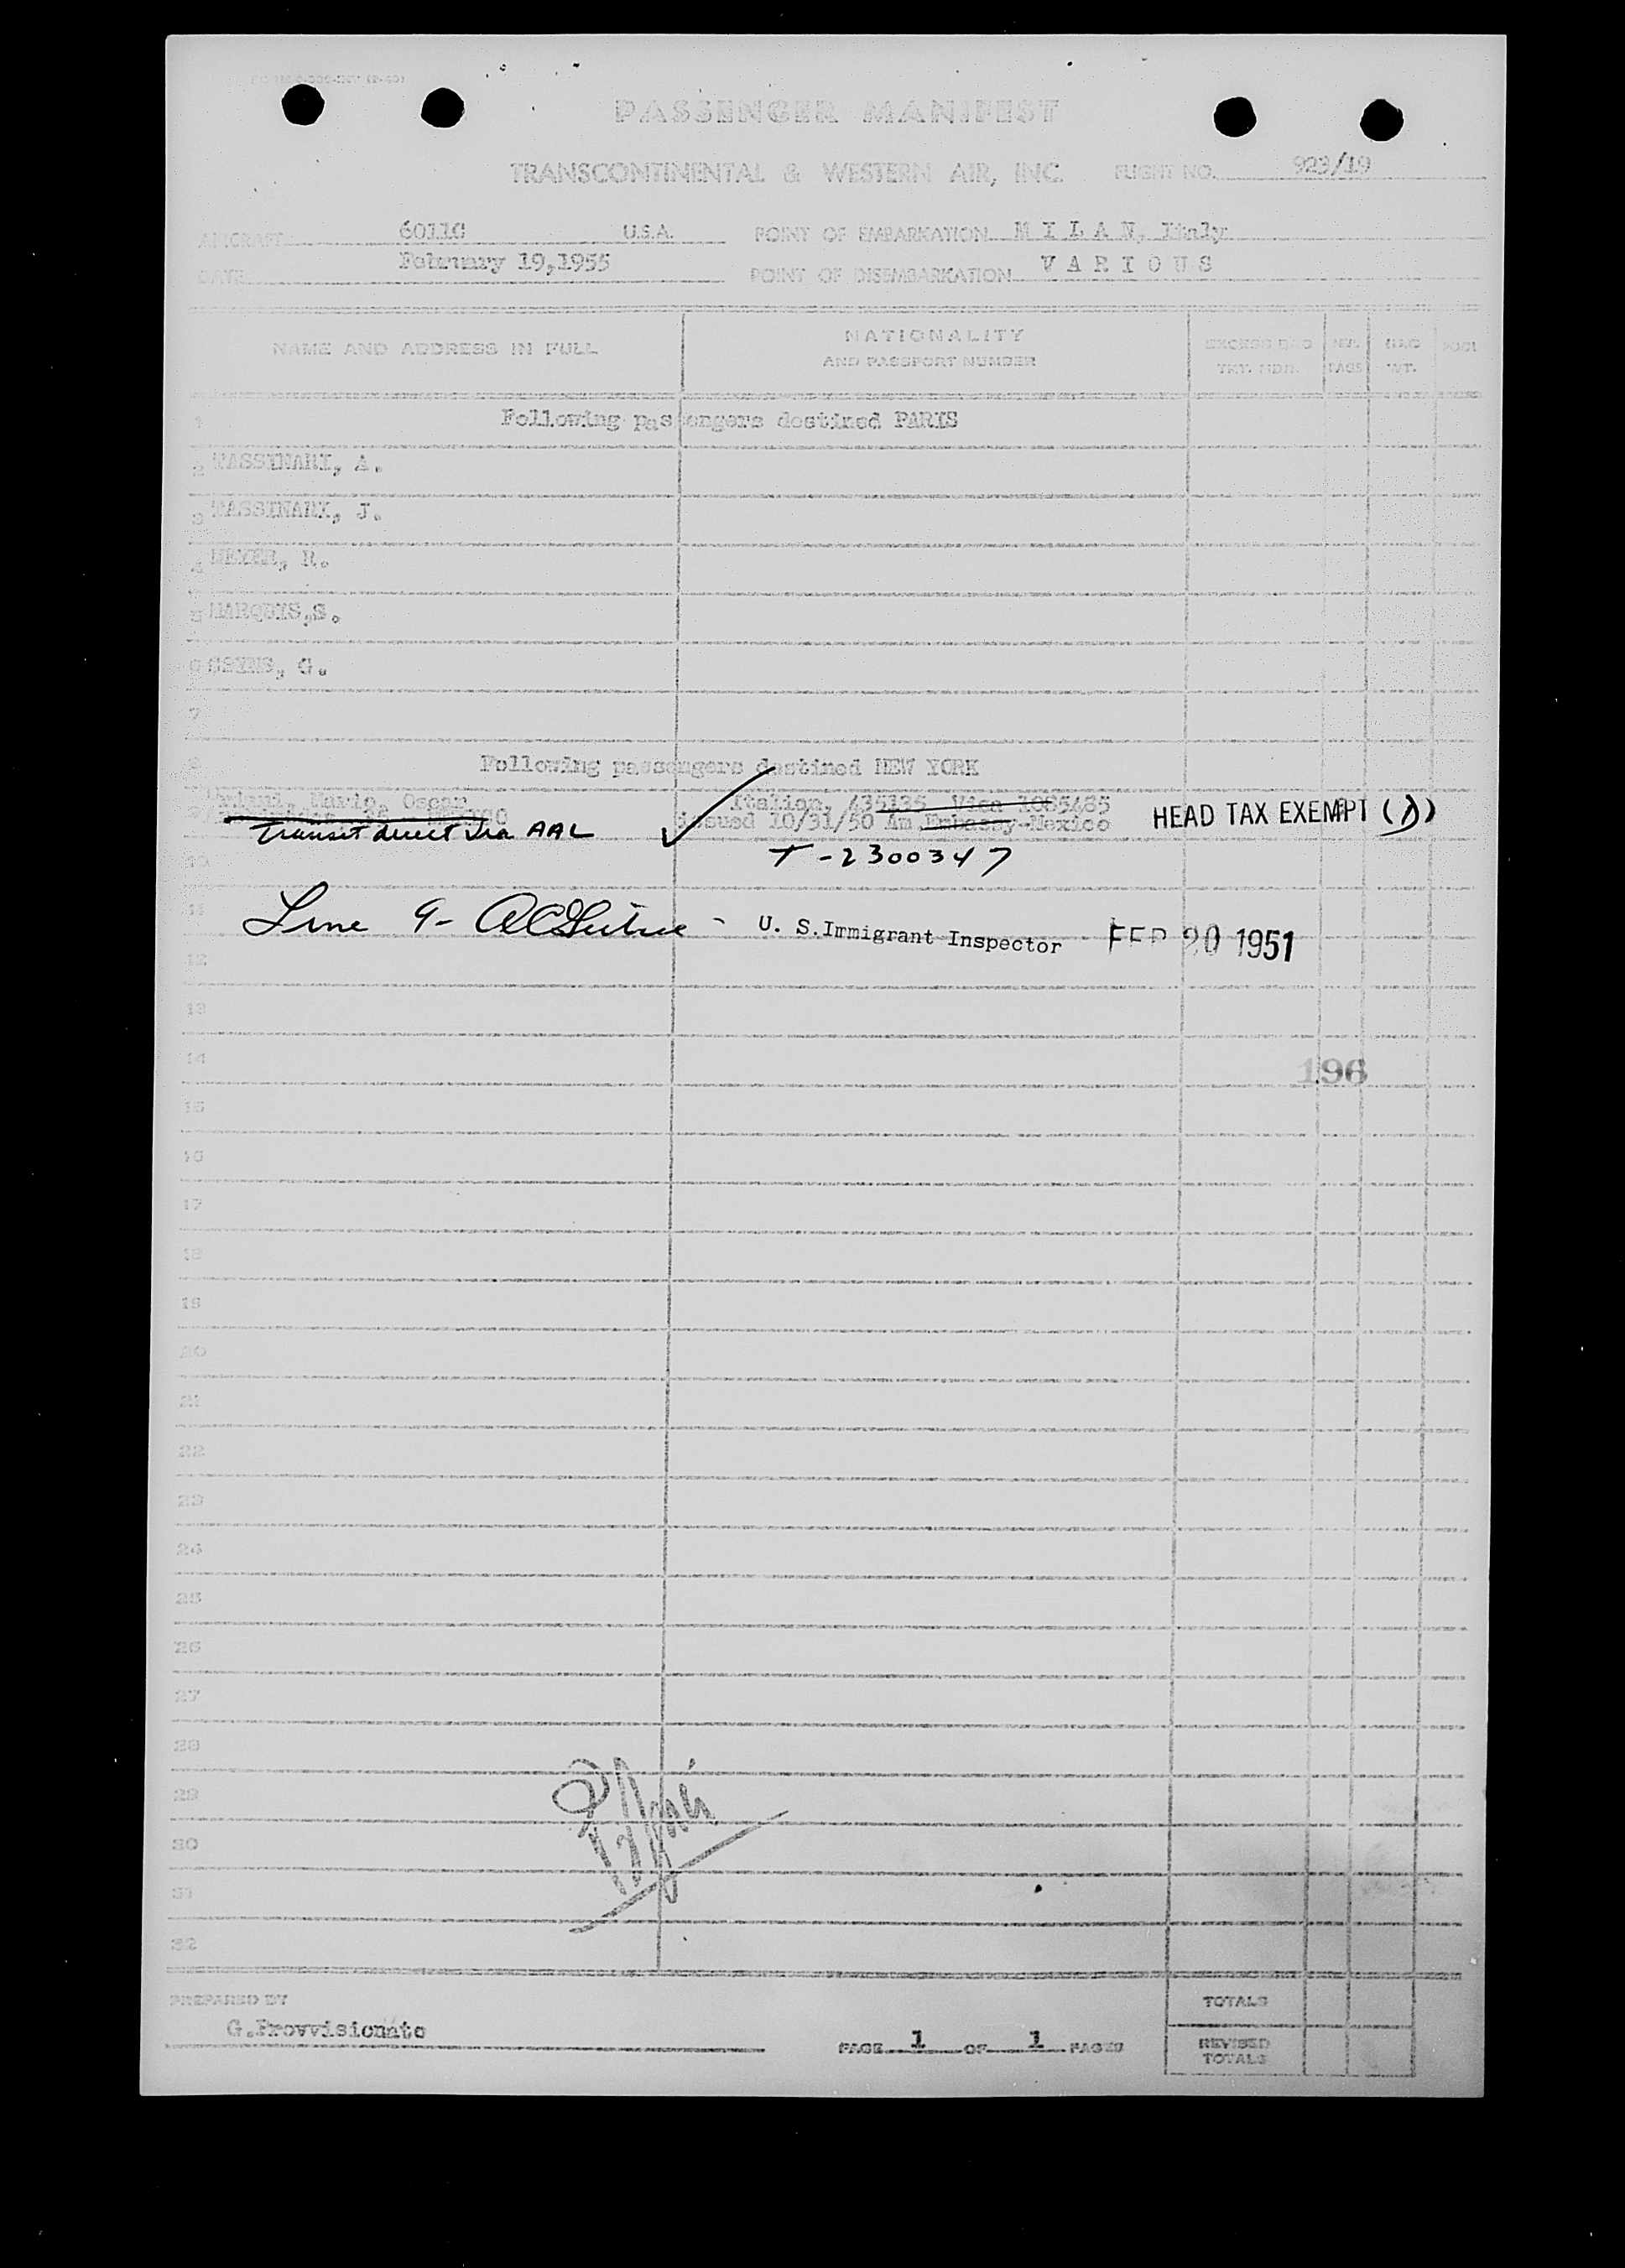 PASSENGER MANIFEST
TRANSCONTINENTAL & WESTERN AIR, INC. FLIGHT NO. 923/19
AIRCRAFT 6011C U.S.A. POINT OF EMBARKATION M I L A N, Italy
DATE February 19,1955 POINT OF DISEMBARKATION V A R I O U S
NAME AND ADDRESS IN FULL
NATIONALITY
AND PASSPORT NUMBER
EXCESS BAG
TKT. NBR.
TAGS
BAG
WT.
1 Following passengers destined PARIS
2 TASSINARI, A.
3 TASSINARI, J.
4 MEYER, R.
5 MARQUYS,S.
6 G.
7
8 Following passengers destined NEW YORK
9 Mario, Oscar Italian, 435135 Visa 1085485
issued 10/31/50 Am.Embassy-Mexico
HEAD TAX EXEMPT
Transit direct via AAL
10 T-2300347
11 Line 9- U. S.Immigrant Inspector FEB 20 1951
12
13
14 196
15
16
17
18
19
20
21
22
23
24
25
26
27
28
29
30
31
32
PREPARED BY
G.Provvisionato
PAGE 1 OF 1 PAGES
TOTALS
REVISED
TOTALS